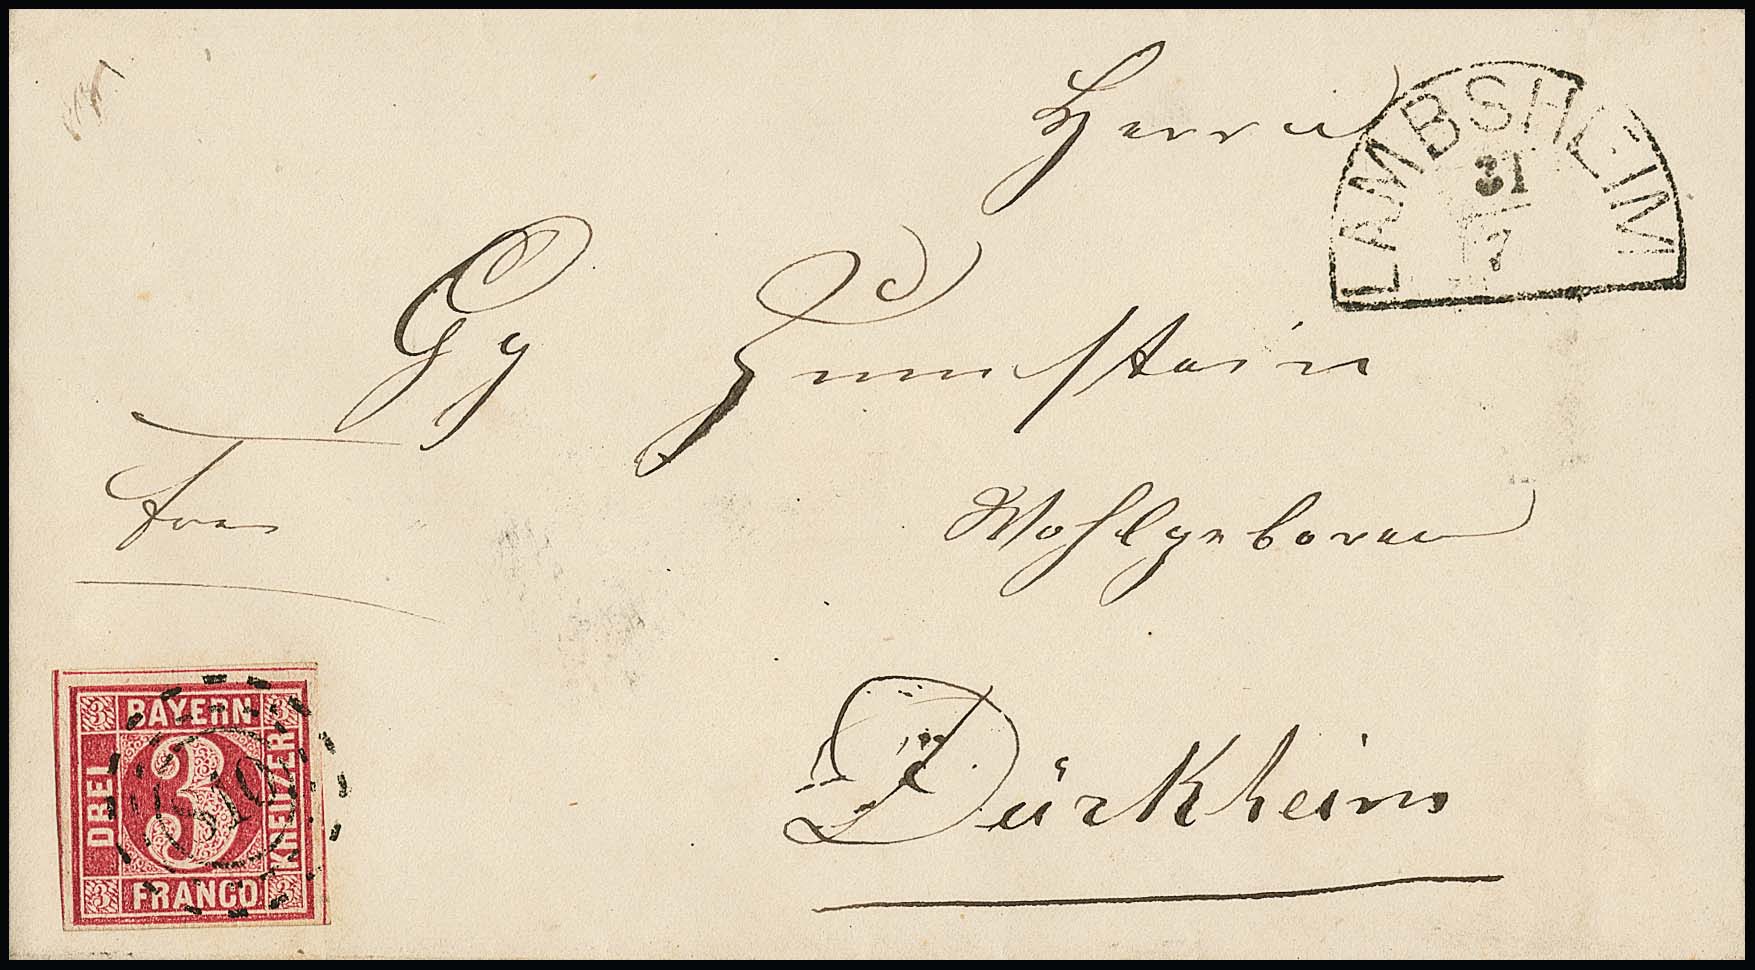 Herrn
LAMBSHEIM
31
7
Gg Zumstein
frei
Wohlgeboren
Dürkheim
3 BAYERN 3
DREI 3 KREUZER
3 FRANCO 3